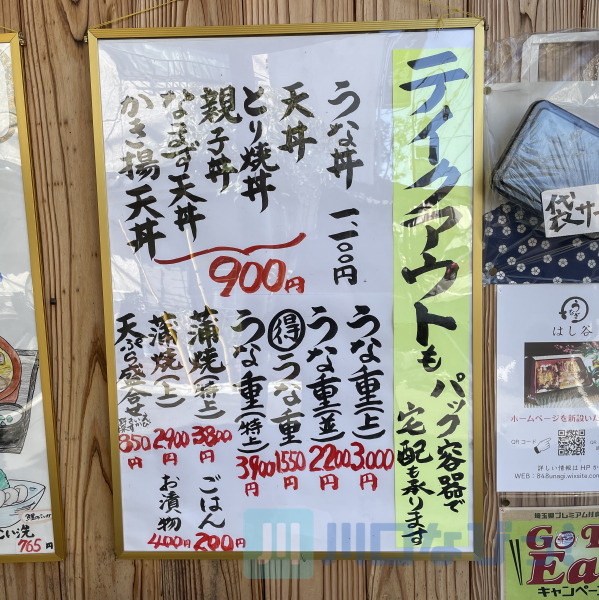 ティクアウトもパック容器で
宅配も承ります
うな丼 一一〇〇円
天丼
とり焼丼
親子丼
なまず天丼
かき揚天丼
900円
うな重(上) 3,000
うな重(並) 2200
得うな重 1550
うな重(特上) 3900
蒲焼(特上) 3800
蒲焼(上) 2900
天ぷら盛合せ 850円
ごはん 200円
お漬物 400円
こい洗 765円
袋サー
はし谷
ホームページを新設いた
QRコード
詳しい情報は HP か
WEB : 848unagi.wixsite.com
埼玉県プレミアム付食
GO T
Ea
キャンペーン
川口なび